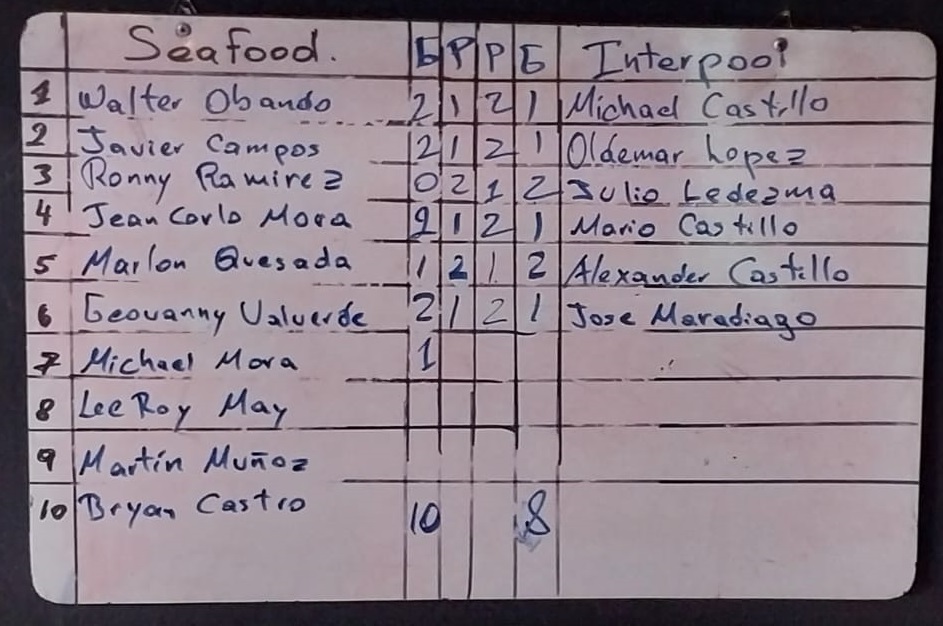 Seafood. G P P G Interpool
1 Walter Obando 2 1 2 1 Michael Castillo
2 Javier Campos 2 1 2 1 Oldemar Lopez
3 Ronny Ramirez 0 2 1 2 Julio Ledezma
4 Jean Carlo Mora 2 1 2 1 Mario Castillo
5 Marlon Quesada 1 2 1 2 Alexander Castillo
6 Geovanny Valverde 2 1 2 1 Jose Maradiago
7 Michael Mora 1
8 Lee Roy May
9 Martín Muñoz
10 Bryan Castro 10 8